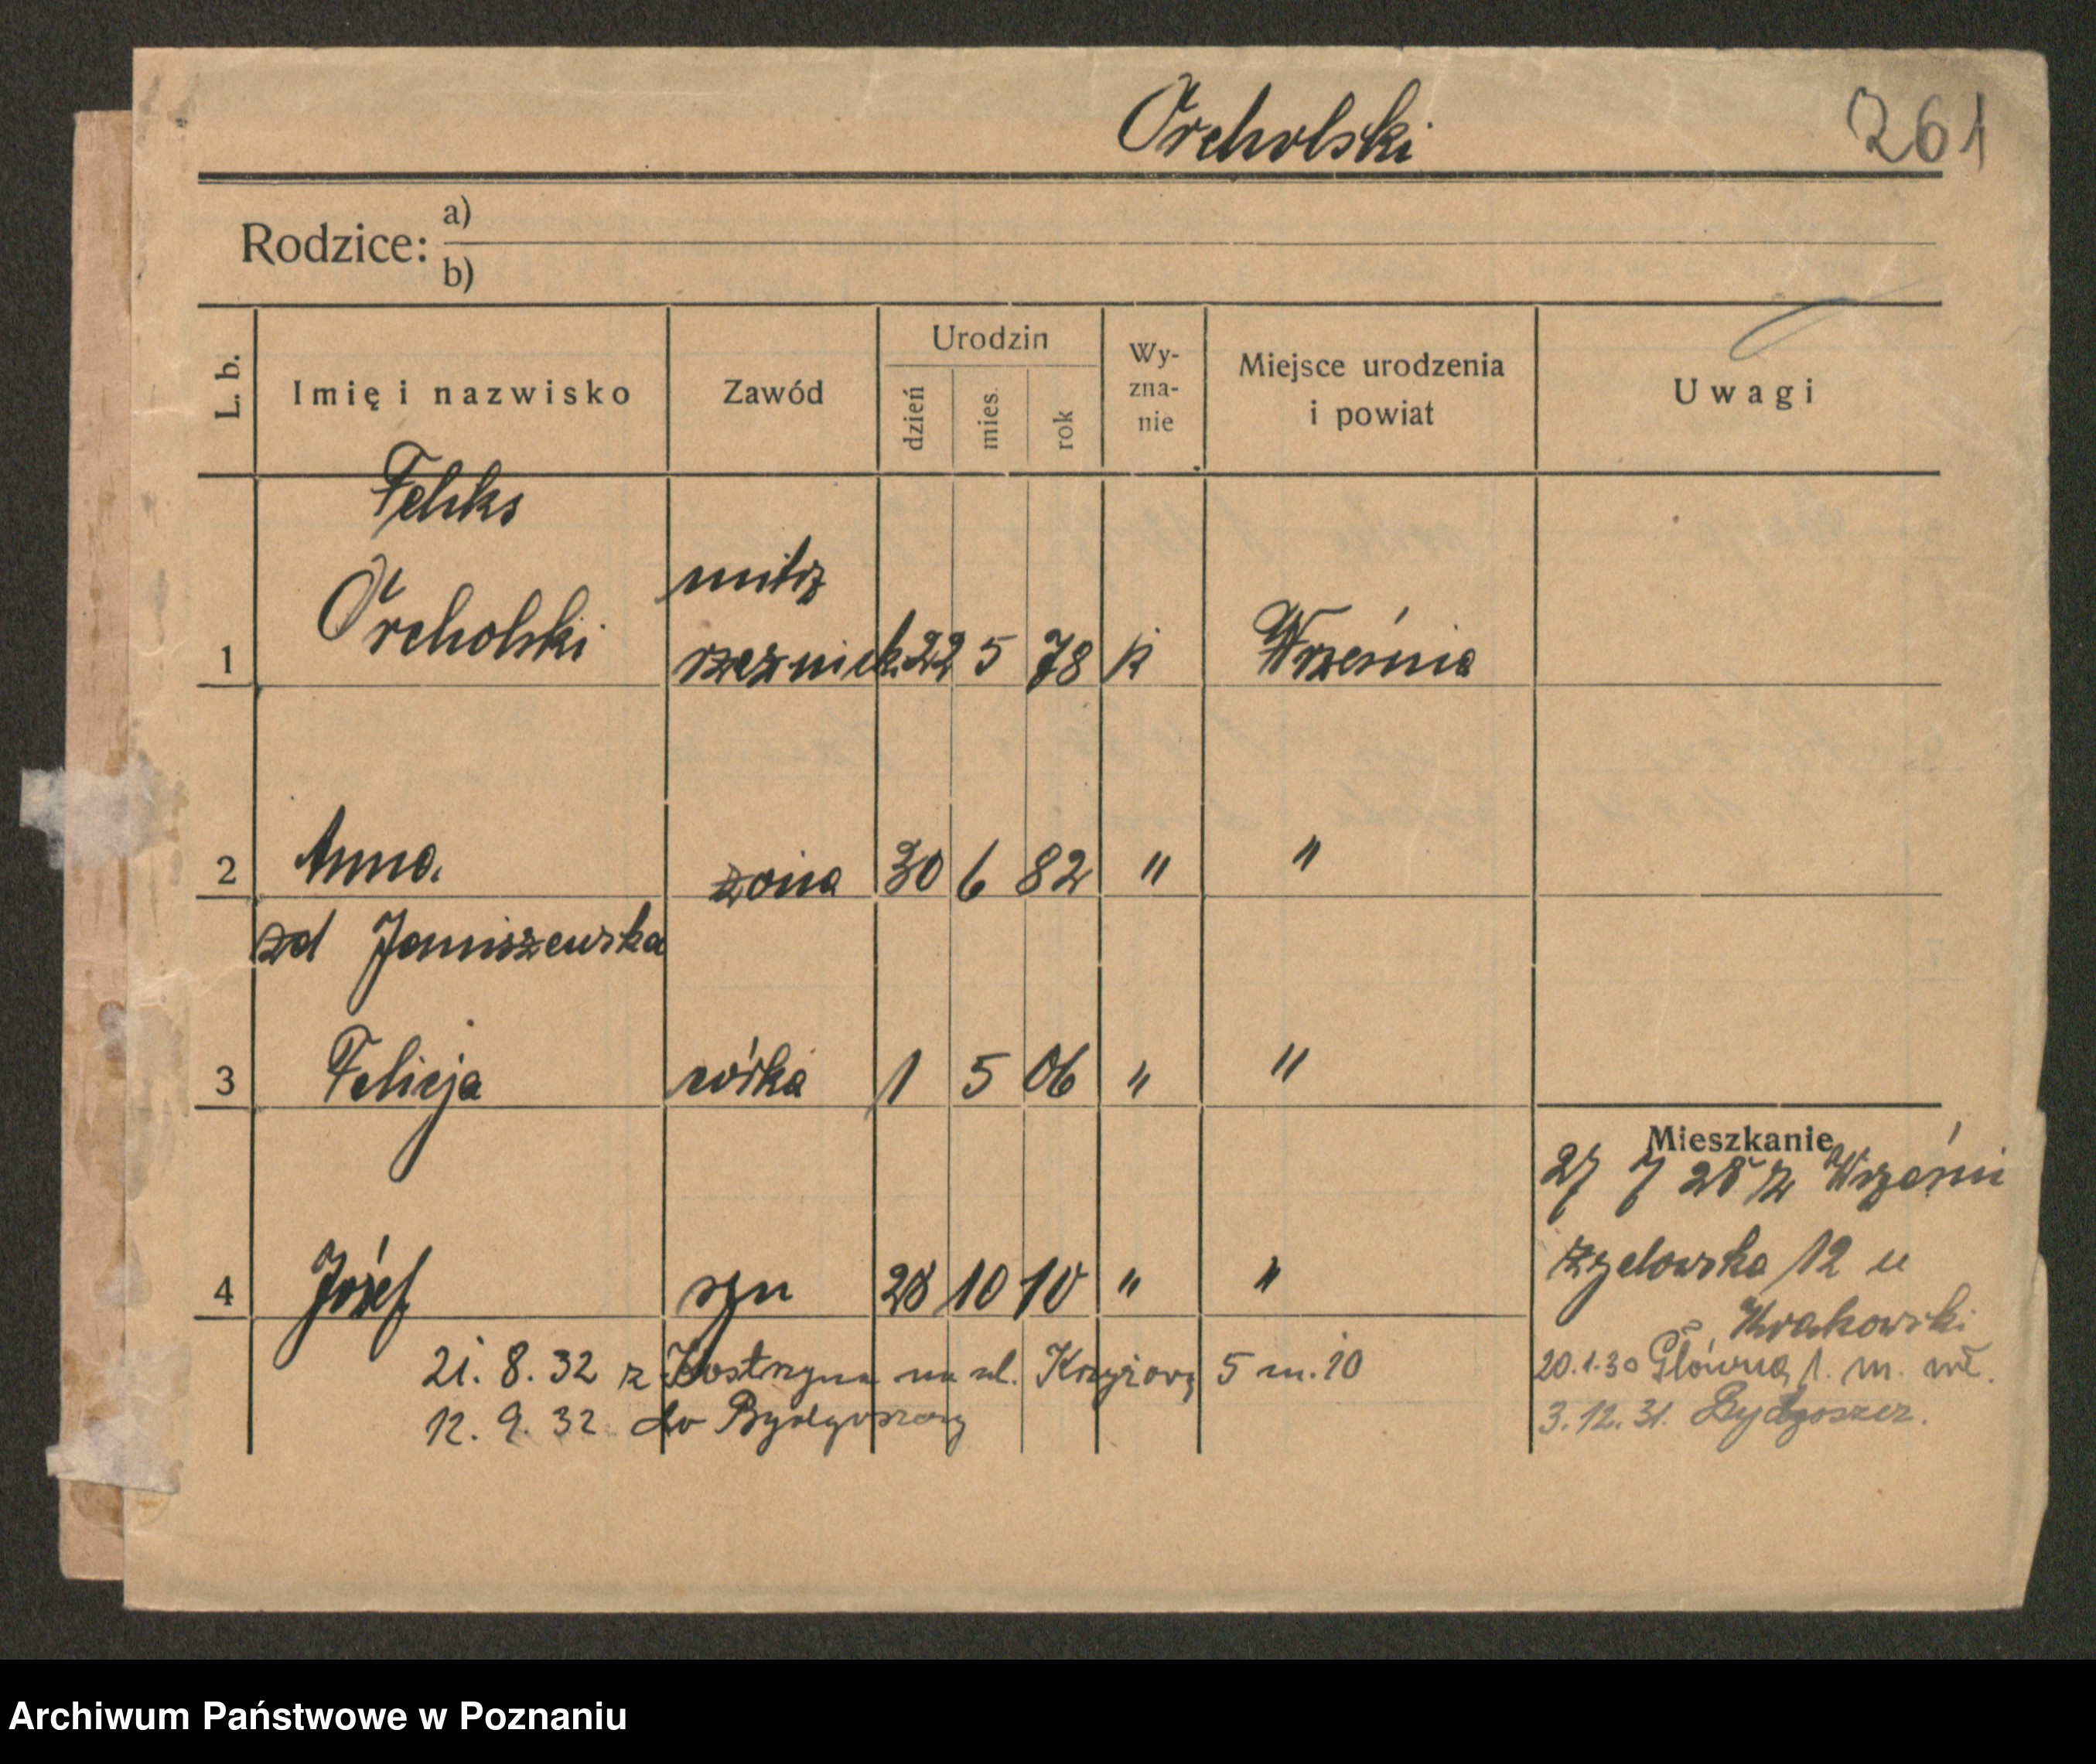 Orcholski 261
Rodzice: a)
b)
L. b. Imię i nazwisko Zawód Urodzin dzień mies. rok Wy-zna-nie Miejsce urodzenia i powiat Uwagi
Feliks
Orcholski
mistrz
1 rzeźnick. 22 5 78 k Września
2 Anna żona 30 6 82 " "
zd Janiszewska
3 Felicja córka 1 5 06 " "
Mieszkanie
27 7 28 z Wrześni
4 Józef syn 28 10 10 " "
12 u
Krakowski
21. 8. 32 z Kostrzyna na ul. Krzyżową 5 m. 10
20.1.30 Główna 1. m. wł.
12. 9. 32 do Bydgoszczy
3.12.31. Bydgoszcz.
Archiwum Państwowe w Poznaniu